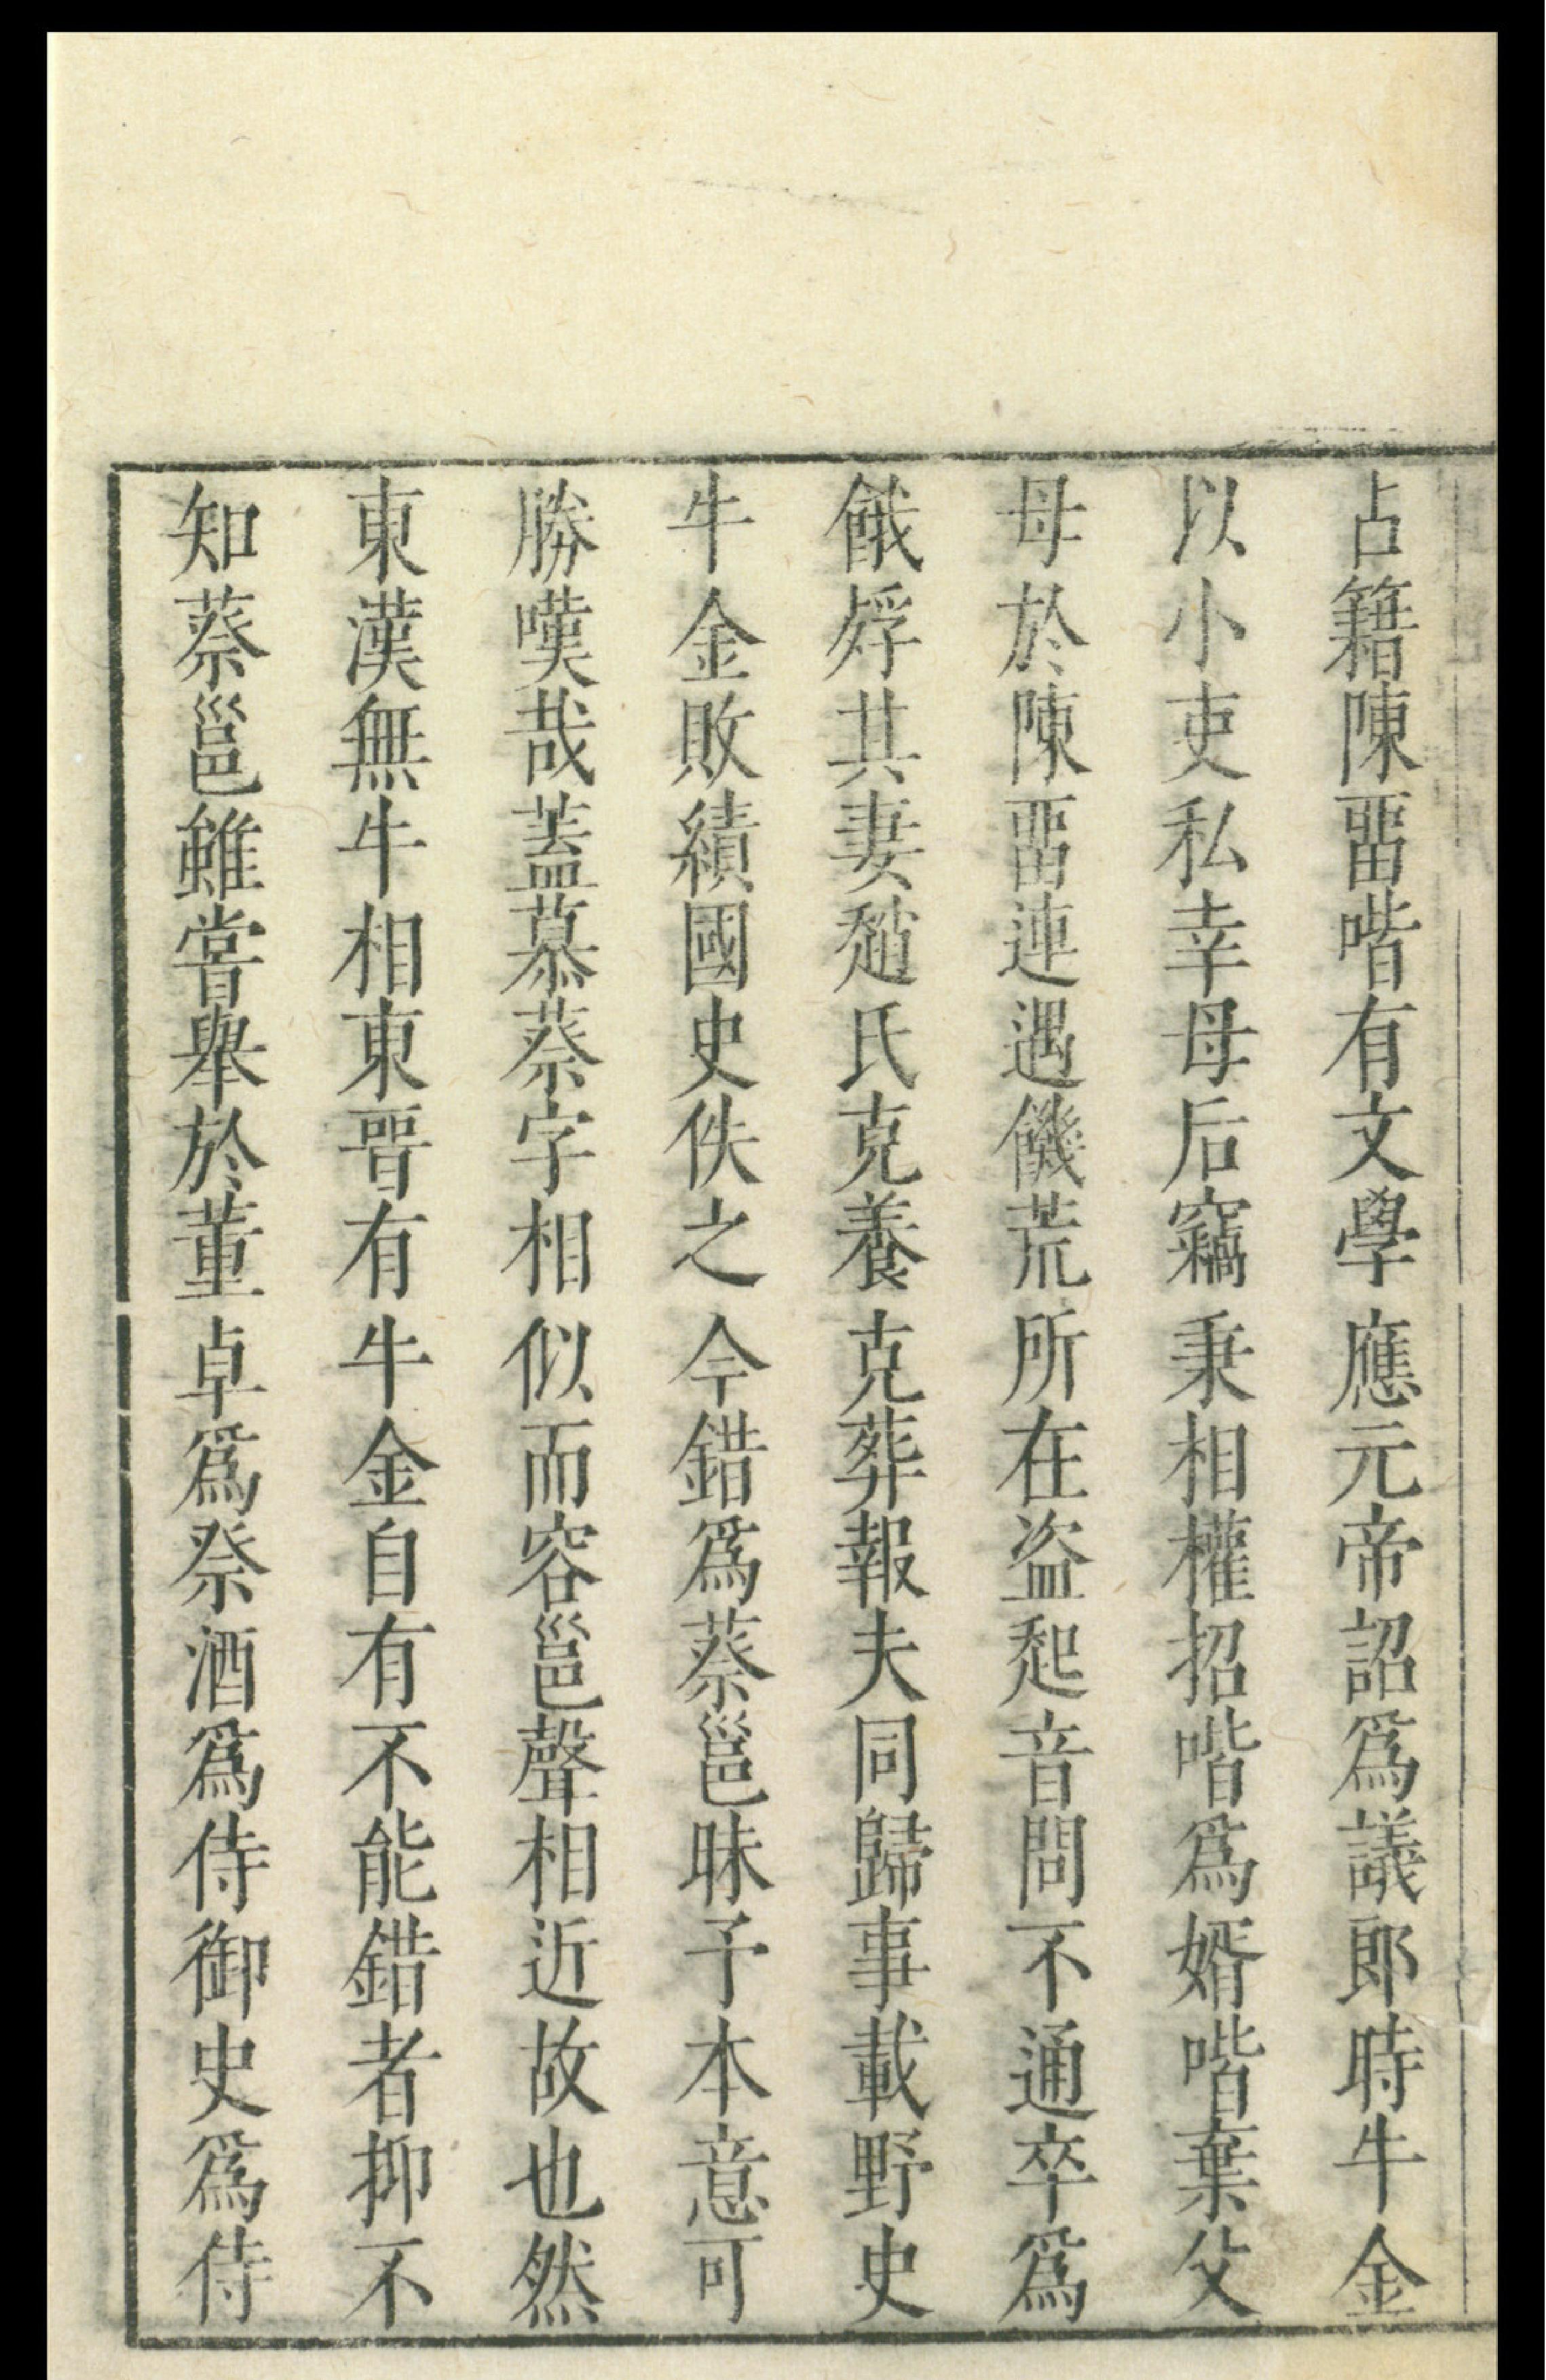 占籍陳畱喈有文學應元帝詔爲議郎時牛金
以小吏私幸母后竊秉相權招喈爲婿喈棄父
母於陳畱連遇饑荒所在盜起音問不通卒爲
餓殍其妻趙氏克養克葬報夫同歸事載野史
牛金敗績國史佚之今錯爲蔡邕昧予本意可
勝嘆哉蓋慕蔡字相似而容邕聲相近故也然
東漢無牛相東晉有牛金自有不能錯者抑不
知蔡邕雖嘗舉於董卓爲祭酒爲侍御史爲侍